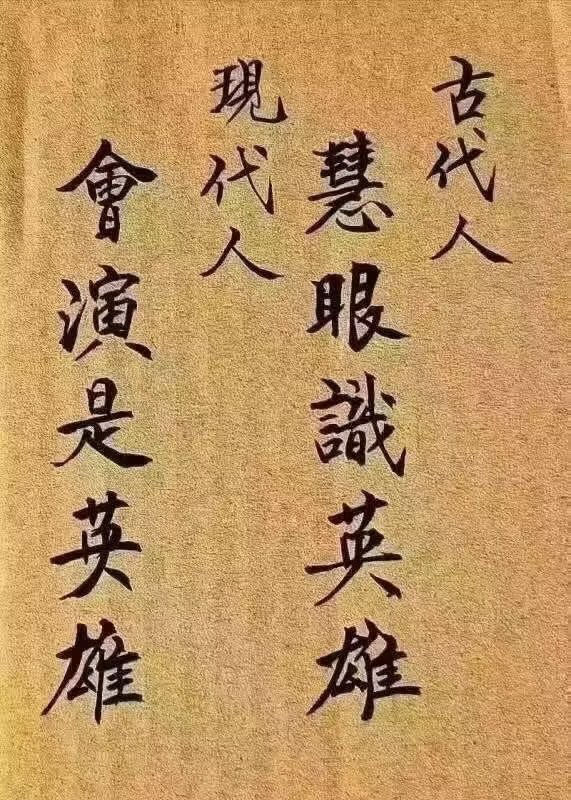 古代人
慧眼識英雄
現代人
會演是英雄